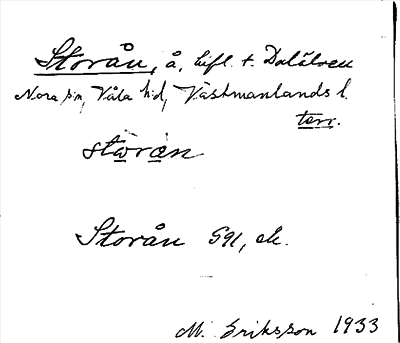 Storån, å, bifl. t. Dalälven
Nora sn, Våla hd, Västmanlands l.
terr.
stωrån
Storån GSA, ek.
M. Eriksson 1933